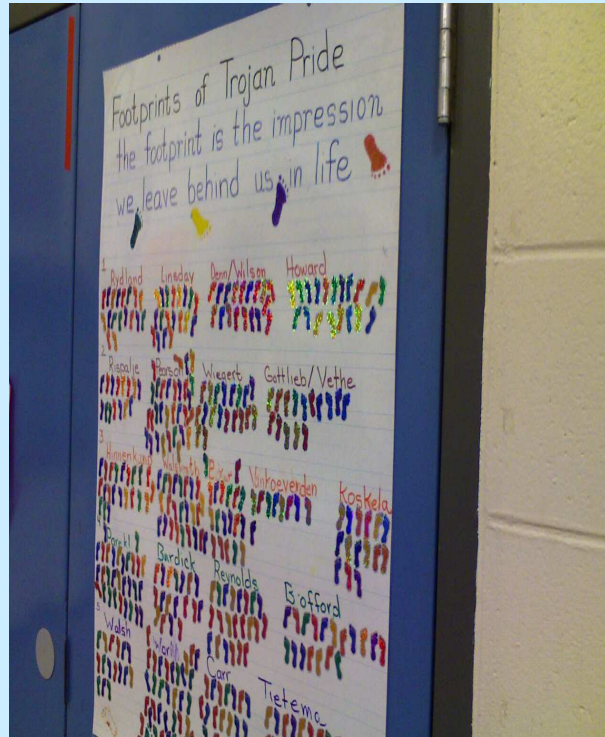 Footprints of Trojan Pride
the footprint is the impression
we leave behind us in life
1 Rydland Linsday Denn/Wilson Howard
2 Rispalje Pearson Wiegert Gottlieb/Vethe
3 Vankoeverden Koskela
Burdick Reynolds Bofford
5 Walsh Carr Tietema